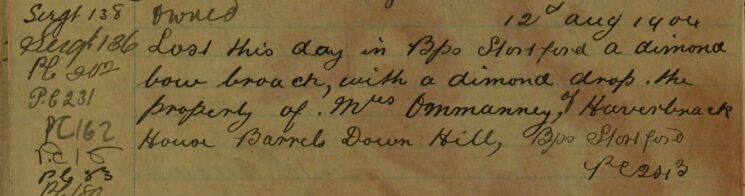 Sergt 138 Owned 12th Aug 1904
Sergt 136 Lost this day in Bps Stortford a dimond
PC 202 bow broach, with a dimond drop. the
PC 231 property of. Mrs Ommanney, of Haverbrack
PC 162 House Barrels Down Hill, Bps Stortford
PC 243
PC 83